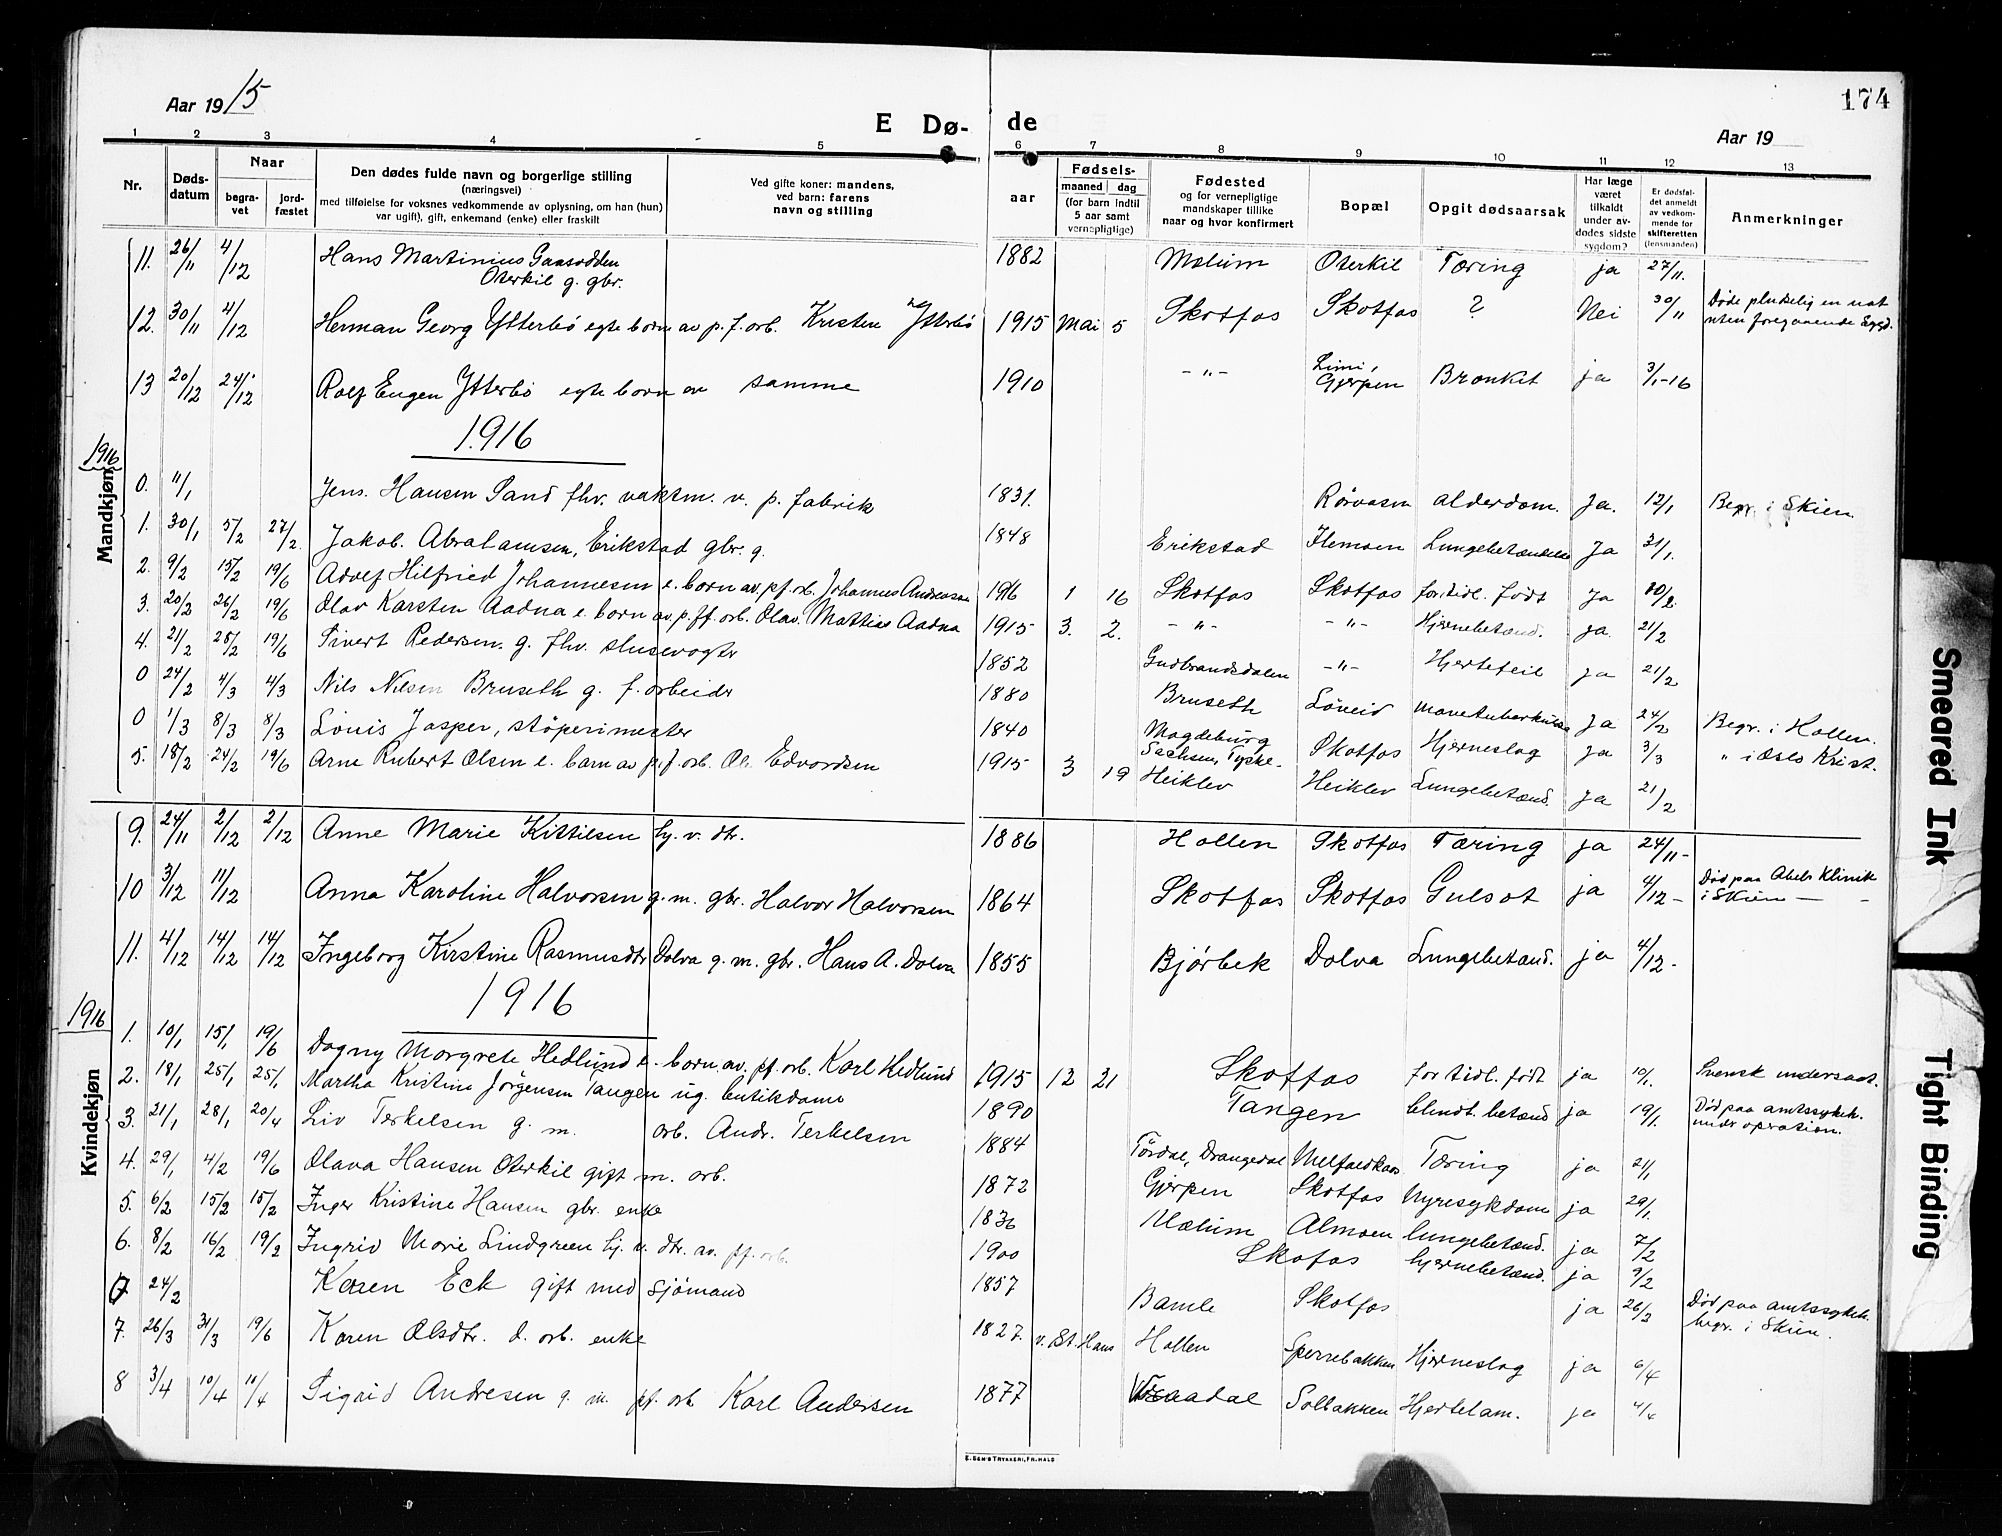 Aar 1915
E Dø-
de
Aar 19
174
1 2 3 4 5 6 7 8 9 10 11 12 13
Nr.
Døds-
datum
Naar
begra-
vet
jord-
fæstet
Den dødes fulde navn og borgerlige stilling
(næringsvei)
med tilføielse for voksnes vedkommende av oplysning, om han (hun)
var ugift), gift, enkemand (enke) eller fraskilt
Ved gifte koner: mandens,
ved barn: farens
navn og stilling
aar
Fødsels-
maaned dag
(for barn indtil
5 aar samt
vernepligtige)
Fødested
og for vernepligtige
mandskaper tillike
naar og hvor konfirmert
Bopæl
Opgit dødsaarsak
Har læge
været
tilkaldt
under av-
dødes sidste
sygdom?
Er dødsfal-
det anmeldt
av vedkom-
mende for
skifteretten
(lensmanden)
Anmerkninger
11. 26/11 4/12 Hans Martinius Gaasodden 1882 Melum Oterkil Tæring ja 27/11.
Oterkil g. gbr.
12. 30/11 4/12 Herman Georg Ytterbö egte barn av p. f. orb. Kristen Ytterbö 1915 Mai 5 Skotfos Skotfos ? Nei 30/11 Døde pludselig en nat
uten foregaaende sygd.
13 20/12 24/12 Rolf Eugen Ytterbö egte barn av samme 1910 -"- Limi, Gjerpen Bronkit ja 3/1-16
1916
1916
Mandkjøn
0. 11/1 Jens Hansen Sand fhv. vaktm. v. p. fabrik 1831. Rørvasen alderdom. Ja. 12/1 Begr. i Skien.
1. 30/1 5/2 27/2 Jakob Abrahamsen, Erikstad gbr. g. 1848 Erikstad Hemoen Lungebetændelse Ja 31/1.
2. 9/2 15/2 19/6 Adolf Hilfried Johannesen e. barn av pf. orb. Johannes Andersen 1916 1 16 Skotfos Skotfos for tidl. født Ja 10/2.
3. 20/2 26/2 19/6 Olav Karsten Aadna e. barn av p. ff. orb. Olav Mattias Aadna 1915 3. 2. -"- -"- Hjernebetænd. ja. 21/2
4. 21/2 28/2 19/6 Sivert Pedersen g. fhv. slusevogter 1852 Gudbrandsdalen -"- Hjertefeil ja 21/2
0 24/2 4/3 4/3 Nils Nilsen Bruseth g. f. arbeider 1880 Bruseth Löveid mavetuberkulose Ja 24/2 Begr. i Hollen.
0 1/3 8/3 8/3 Louis Jasper, stöperimester 1840 Magdeburg Sachsen, Tyskl. Skotfos Hjerneslag ja 3/3 " i Oslo Krist.
5. 18/2 24/2 19/6 Arne Robert Olsen e. barn av p. f. orb. Ol. Edvardsen 1915 3 19 Heiklev Heiklev Lungebetænd. Ja 21/2
9. 24/11 2/12 2/12 Anne Marie Kittilsen hj. v. dtr. 1886 Hollen Skotfos Tæring ja 24/11-
10 3/12 11/12 Anna Karoline Halvorsen g. m. gbr. Halvor Halvorsen 1864 Skotfos Skotfos Gulsot ja 4/12- Død paa Abels Klinik
i Skien —
11. 4/12 14/12 14/12 Ingeborg Kirstine Rasmusdtr Dolva g. m. gbr. Hans A. Dolva 1855 Bjørbek Dolva Lungebetænd. ja 4/12-
1916
1916
Kvindekjøn
1. 10/1 15/1 19/6 Dagny Margrete Hedlund e. barn av. pf. orb. Karl Hedlund 1915 12 21 Skotfos for tidl. født ja 10/1. Svensk undersaat.
2. 18/1 25/1 25/1 Martha Kristine Jörgensen Tangen ug. butikdame 1890 Tangen blindt. betænd ja 19/1. Død paa amtssykeh.
under opration.
3. 21/1 28/1 20/4 Liv Terkelsen g. m. orb. Andr. Terkelsen 1884 Tördal, Drangedal Tæring ja 21/1
4. 29/1 4/2 19/6 Olava Hansen Oterkil gift m. orb. 1872 Gjerpen Skotfos Nyresykdom ja 29/1.
5. 6/2 15/2 15/2 Inger Kristine Hansen gbr. enke 1836 Melum Almoen lungebetænd. ja 7/2
6. 8/2 16/2 19/2 Ingrid Marie Lindgreen hj. v. dtr. av. pf. orb. 1900 Skotfos hjernebetænd. ja 9/2
0 24/2 Karen Eck gift med sjömand 1857 Bamle Skotfos ja 26/2 Død paa amtssykeh.
begr. i Skien.
7. 26/3 31/3 19/6 Karen Olsdtr. d. orb. enke 1827. v. St. Hans Hollen Sperrebakken Hjerneslag ja 6/4
8 3/4 10/4 10/4 Sigrid Andresen g. m. pf. orb Karl Andersen 1877 Solbakken Hjertelam. ja 4/4
E. SEM'S TRYKKERI, FR.HALD
Smeared Ink
Tight Binding